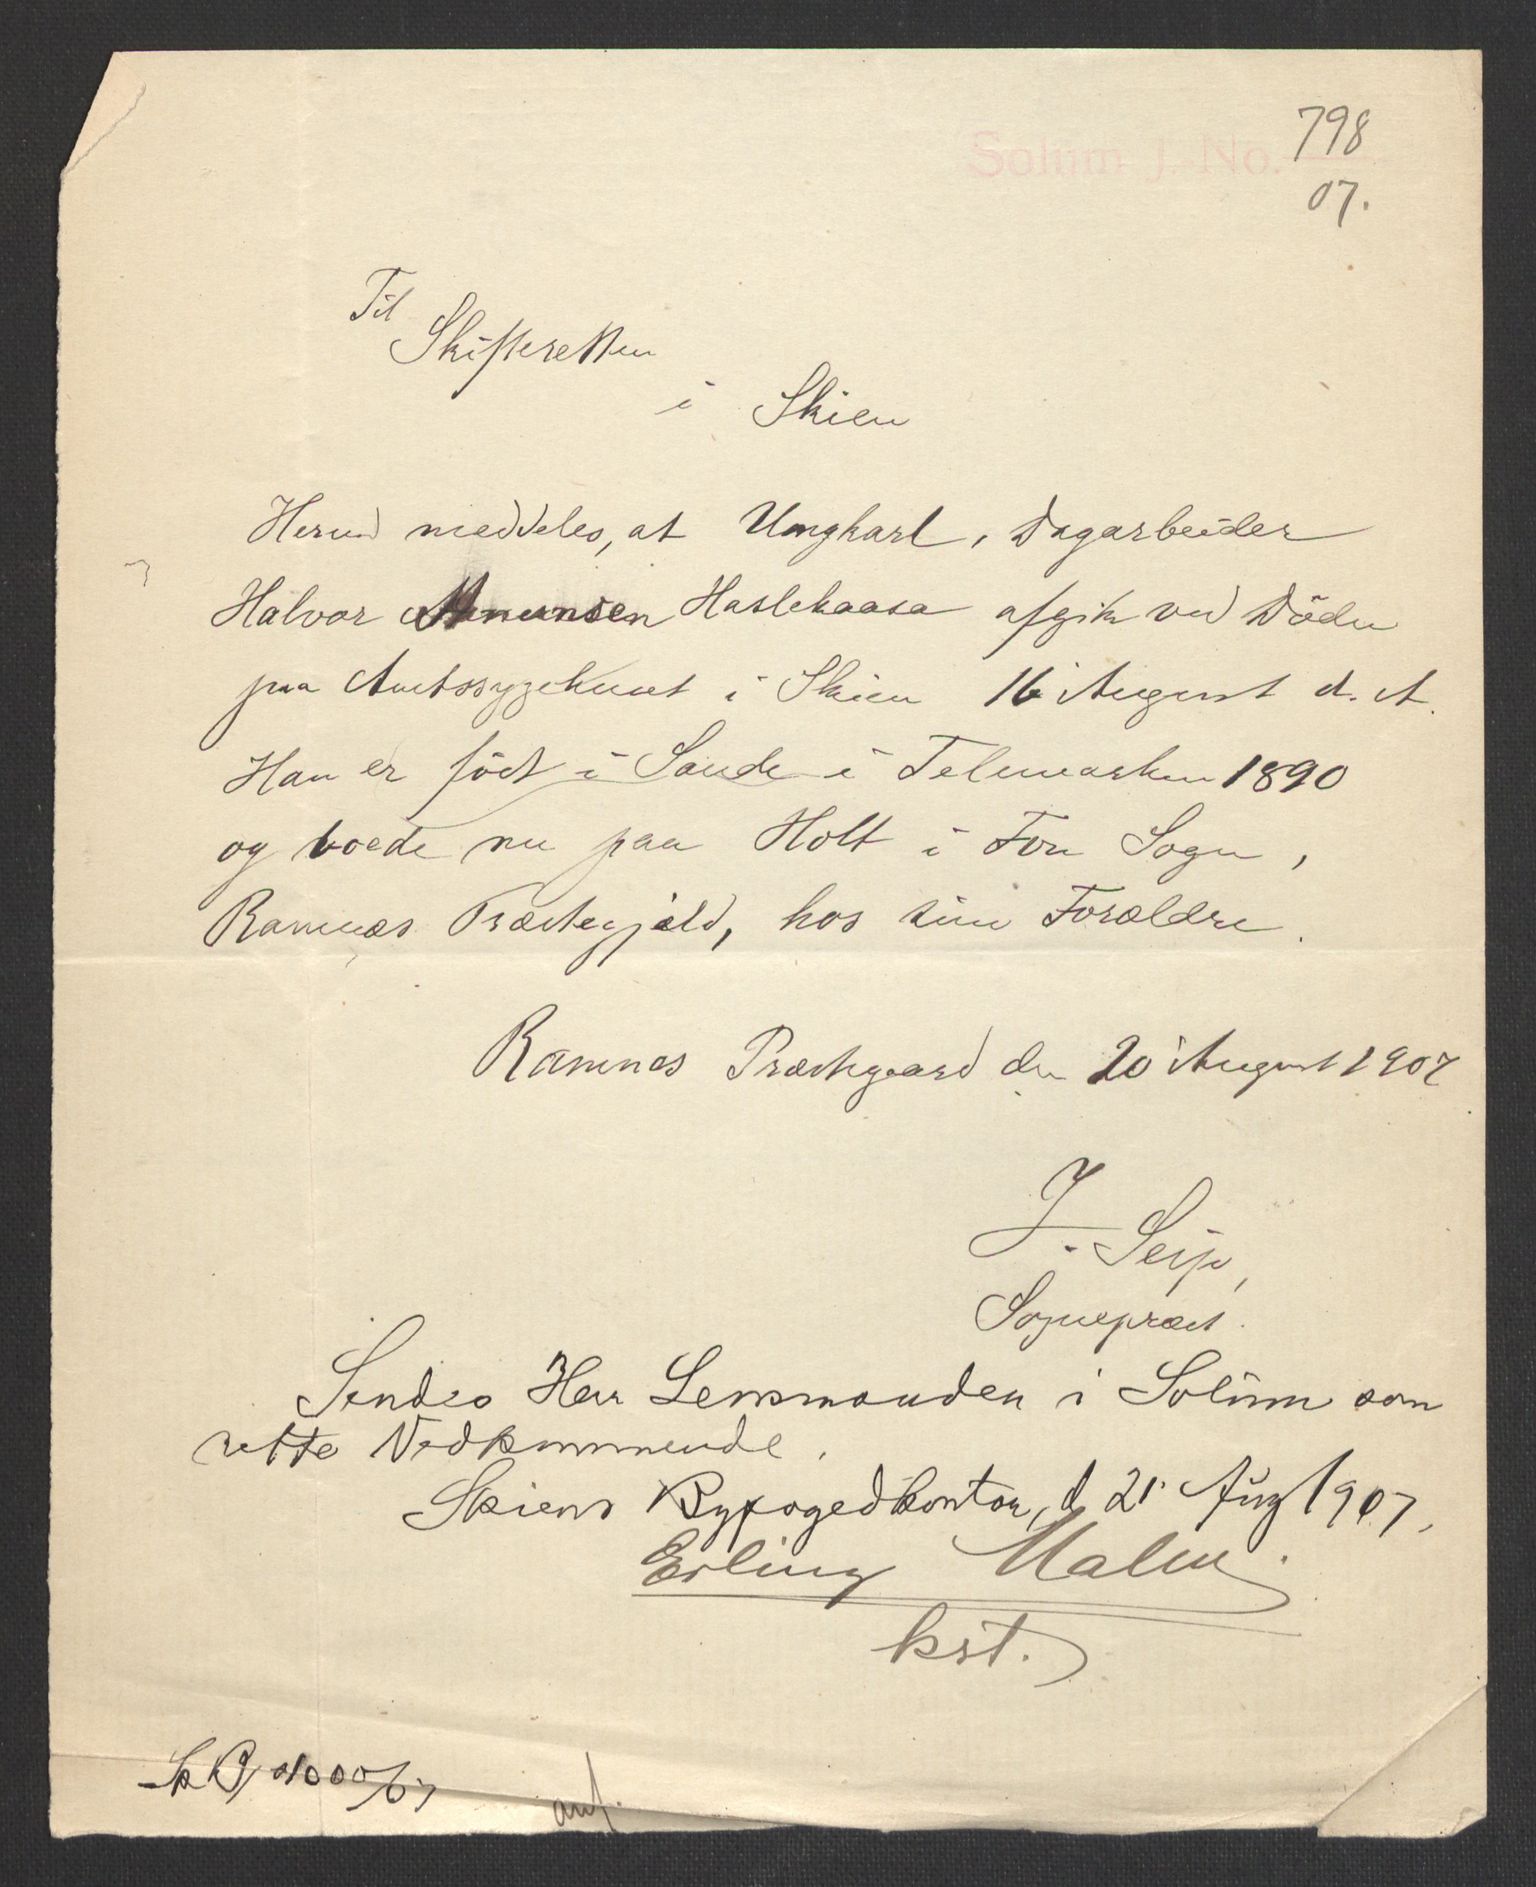 Solum J. No. 798
07.
Til
Skifteretten
i Skien
Herved meddeles, at Ungkarl, Dagarbeider
Halvor Amundsen Haslekaasa afgik ved Døden
paa Amtssygehuset i Skien 16 August d. A.
Han er født i Saude i Telemarken 1890
og boede nu paa Holt i Fon Sogn,
Ramnæs Præstegjeld, hos sine Forældre.
Ramnæs Præstegaard den 20 August 1907
J. Seip,
Sogneprest.
Sendes Herr Lensmanden i Solum som
rette Vedkommende.
Skiens Byfogedkontor, d 21 Aug 1907.
Erling Malm
kst.